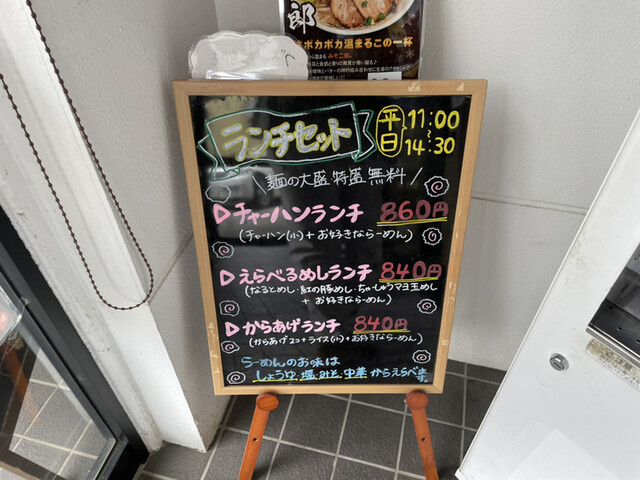 郎
ポカポカ温まるこの一杯
ランチセット
平日
11:00
~
14:30
\ 麺の大盛・特盛 無料 /
チャーハンランチ 860円
(チャーハン(小)+お好きならーめん)
えらべるめしランチ 840円
(なるとめし・紅の豚めし・ちゃーしゅうマヨ玉めし
+お好きならーめん)
からあげランチ 840円
(からあげ2コ+ライス(小)+お好きならーめん)
らーめんのお味は
しょうゆ・塩・みそ・中華 からえらべます。